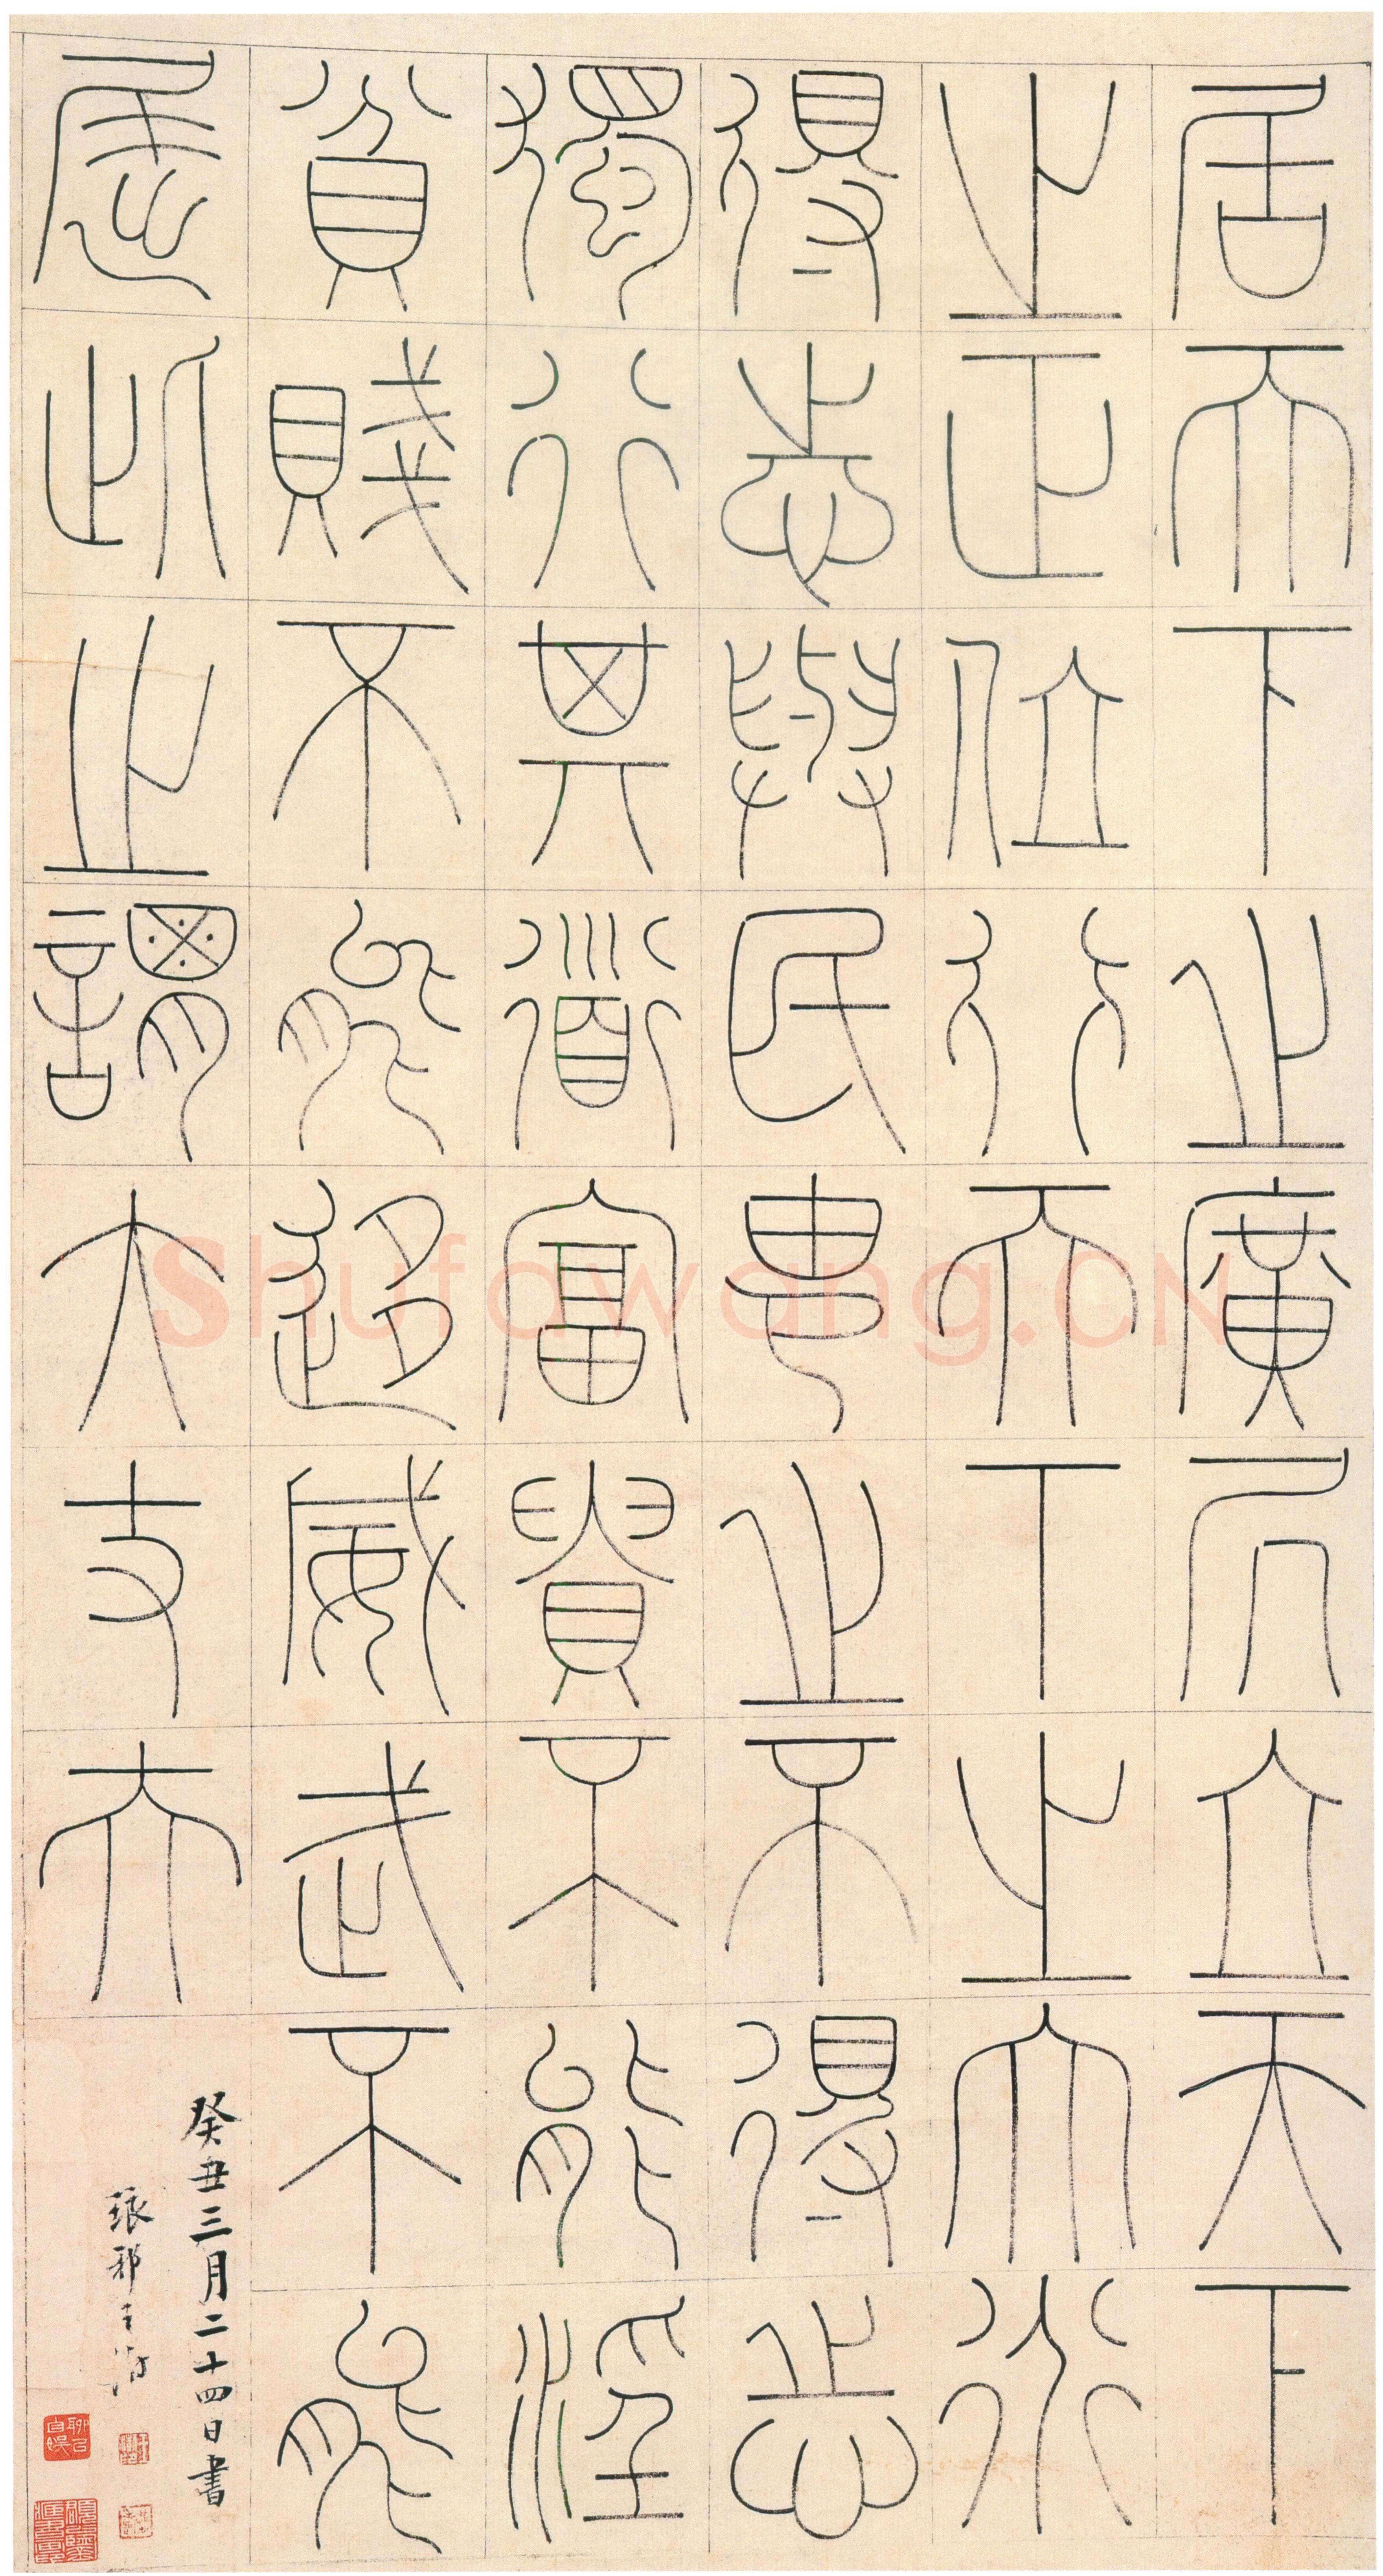 居天下之廣凥立天下
之正位行天下之大道
得志與民由之不得志
獨行其道富貴不能淫
貧賤不能迻威武不能
屈此之謂大丈夫
癸丑三月二十四日書
琅邪王澍
Shufawang.CN